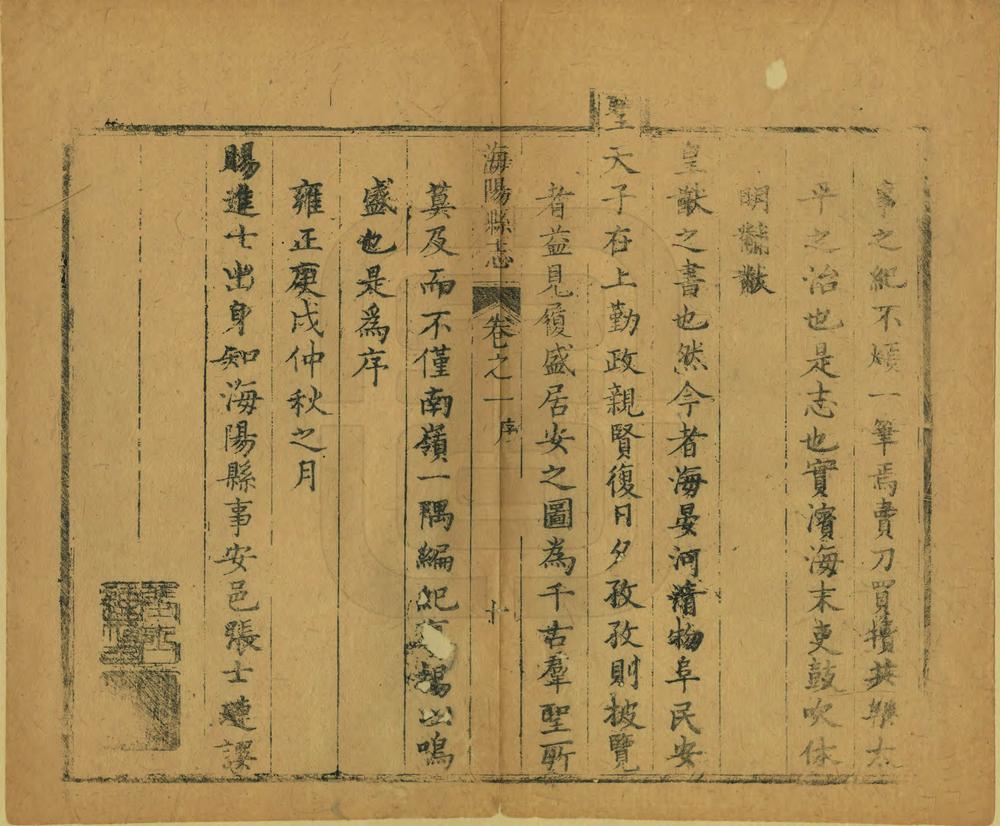 事之紀不煩一筆焉賣刀買犢共樂太
平之治也是志也實濱海末吏鼓吹休
明黼黻
皇猷之書也然今者海晏河清物阜民安
聖天子在上勤政親賢復日夕孜孜則披覽
者益見履盛居安之圖為千古羣聖所
海陽縣志 卷之一 序 十
莫及而不僅南嶺一隅編祀揚出鳴
盛也是為序
雍正庚戌仲秋之月
賜進士出身知海陽縣事安邑張士璉譔